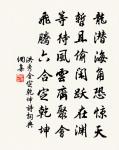 龍潛海角恐驚天
暫且偷閒躍在淵
等待風雲齊聚會
飛騰六合定乾坤
洪秀全定乾坤詩詞典
個集